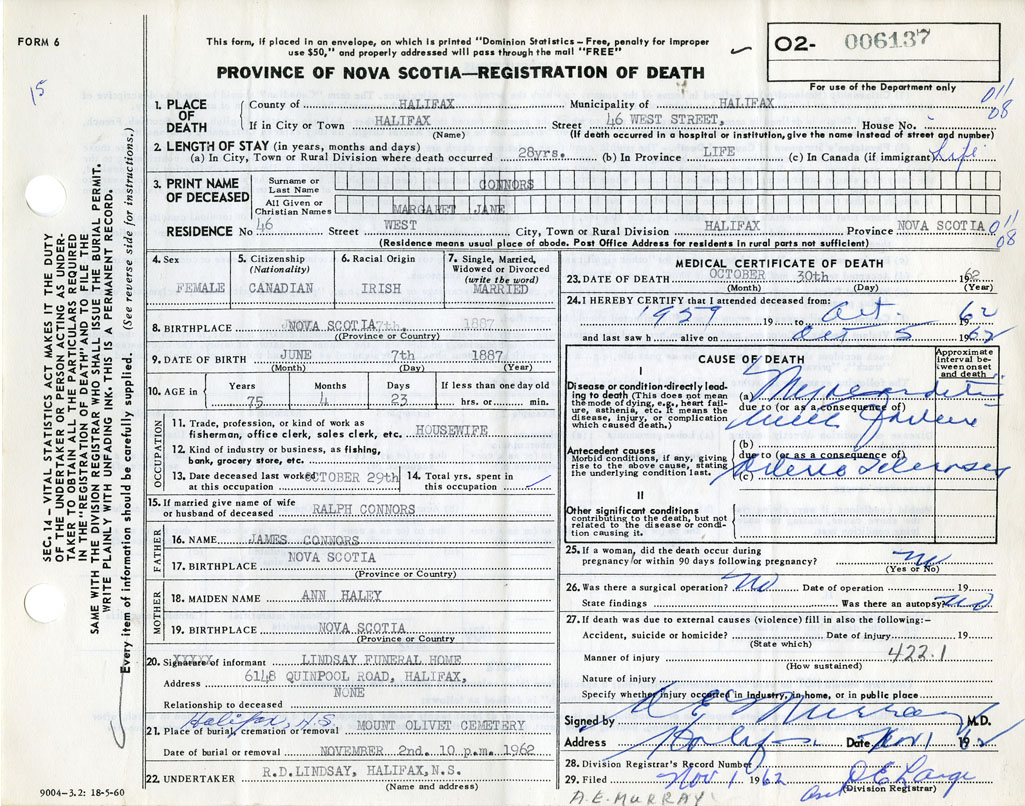 FORM 6
15
This form, if placed in an envelope, on which is printed "Dominion Statistics – Free, penalty for improper
use $50," and properly addressed will pass through the mail "FREE"
PROVINCE OF NOVA SCOTIA—REGISTRATION OF DEATH
O2- 006137
For use of the Department only
SEC. 14 - VITAL STATISTICS ACT MAKES IT THE DUTY
OF THE UNDERTAKER OR PERSON ACTING AS UNDER-
TAKER TO OBTAIN ALL THE PARTICULARS REQUIRED
IN THE "REGISTRATION OF DEATH" AND TO FILE THE
SAME WITH THE DIVISION REGISTRAR WHO SHALL ISSUE THE BURIAL PERMIT.
WRITE PLAINLY WITH UNFADING INK. THIS IS A PERMANENT RECORD.
Every item of information should be carefully supplied. (See reverse side for instructions.)
1. PLACE OF DEATH
County of HALIFAX Municipality of HALIFAX
011
08
If in City or Town HALIFAX Street 46 WEST STREET, House No.
(Name) (If death occurred in a hospital or institution, give the name instead of street and number)
2. LENGTH OF STAY (in years, months and days)
(a) In City, Town or Rural Division where death occurred 28yrs. (b) In Province LIFE (c) In Canada (if immigrant) Life
3. PRINT NAME OF DECEASED
Surname or Last Name CONNORS
All Given or Christian Names MARGARET JANE
RESIDENCE No 46 Street WEST City, Town or Rural Division HALIFAX Province NOVA SCOTIA
011
08
(Residence means usual place of abode. Post Office Address for residents in rural parts not sufficient)
4. Sex FEMALE
5. Citizenship (Nationality) CANADIAN
6. Racial Origin IRISH
7. Single, Married, Widowed or Divorced (write the word) MARRIED
8. BIRTHPLACE NOVA SCOTIA 7th. 1887
(Province or Country)
9. DATE OF BIRTH JUNE 7th 1887
(Month) (Day) (Year)
10. AGE in Years 75 Months 4 Days 23 If less than one day old hrs. or min.
OCCUPATION
11. Trade, profession, or kind of work as
fisherman, office clerk, sales clerk, etc. HOUSEWIFE
12. Kind of industry or business, as fishing,
bank, grocery store, etc.
13. Date deceased last worked at this occupation OCTOBER 29th
14. Total yrs. spent in this occupation
15. If married give name of wife
or husband of deceased RALPH CONNORS
FATHER
16. NAME JAMES CONNORS
17. BIRTHPLACE NOVA SCOTIA
(Province or Country)
MOTHER
18. MAIDEN NAME ANN HALEY
19. BIRTHPLACE NOVA SCOTIA
(Province or Country
20. Signature of informant LINDSAY FUNERAL HOME
XXXXX
Address 6148 QUINPOOL ROAD, HALIFAX,
Relationship to deceased NONE
Halifax, N.S.
21. Place of burial, cremation or removal MOUNT OLIVET CEMETERY
Date of burial or removal NOVEMBER 2nd. 10 p.m. 1962
22. UNDERTAKER R.D.LINDSAY, HALIFAX,N.S.
(Name and address)
9004-3.2: 18-5-60
MEDICAL CERTIFICATE OF DEATH
23. DATE OF DEATH OCTOBER 30th 1962
(Month) (Day) (Year)
24. I HEREBY CERTIFY that I attended deceased from:
1959 19 to Oct. 1962
and last saw h alive on Oct 5 1962
CAUSE OF DEATH
Approximate interval between onset and death
I
Disease or condition directly leading to death (This does not mean the mode of dying, e.g., heart failure, asthenia, etc. It means the disease, injury, or complication which caused death.)
(a) Myocarditis
due to (or as a consequence of)
with failure
Antecedent causes
Morbid conditions, if any, giving rise to the above cause, stating the underlying condition last.
(b)
due to (or as a consequence of)
(c) Arterio Sclerosis
II
Other significant conditions
contributing to the death, but not related to the disease or condition causing it.
25. If a woman, did the death occur during
pregnancy or within 90 days following pregnancy? No
(Yes or No)
26. Was there a surgical operation? No Date of operation 19
State findings Was there an autopsy? No
27. If death was due to external causes (violence) fill in also the following:-
Accident, suicide or homicide? Date of injury 19
(State which)
Manner of injury 422.1
(How sustained)
Nature of injury
Specify whether injury occurred in industry, in home, or in public place
Signed by A E Murray M.D.
Address Halifax Date Nov 1 1962
28. Division Registrar's Record Number
29. Filed Nov 1 1962
(Division Registrar)
A.E. MURRAY